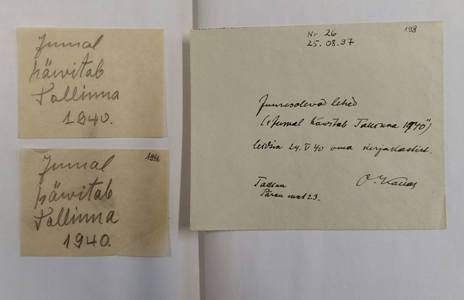 Jumal
hävitab
Tallinna
1940.
Jumal
hävitab
Tallinna
1940.
Nr 26
25.08.97
198
Juuresolevad lehed
("Jumal hävitab Tallinna 1940")
leidsin 24. V 40 oma kirjakastist.
Tallinn
Pärnu mnt 23.